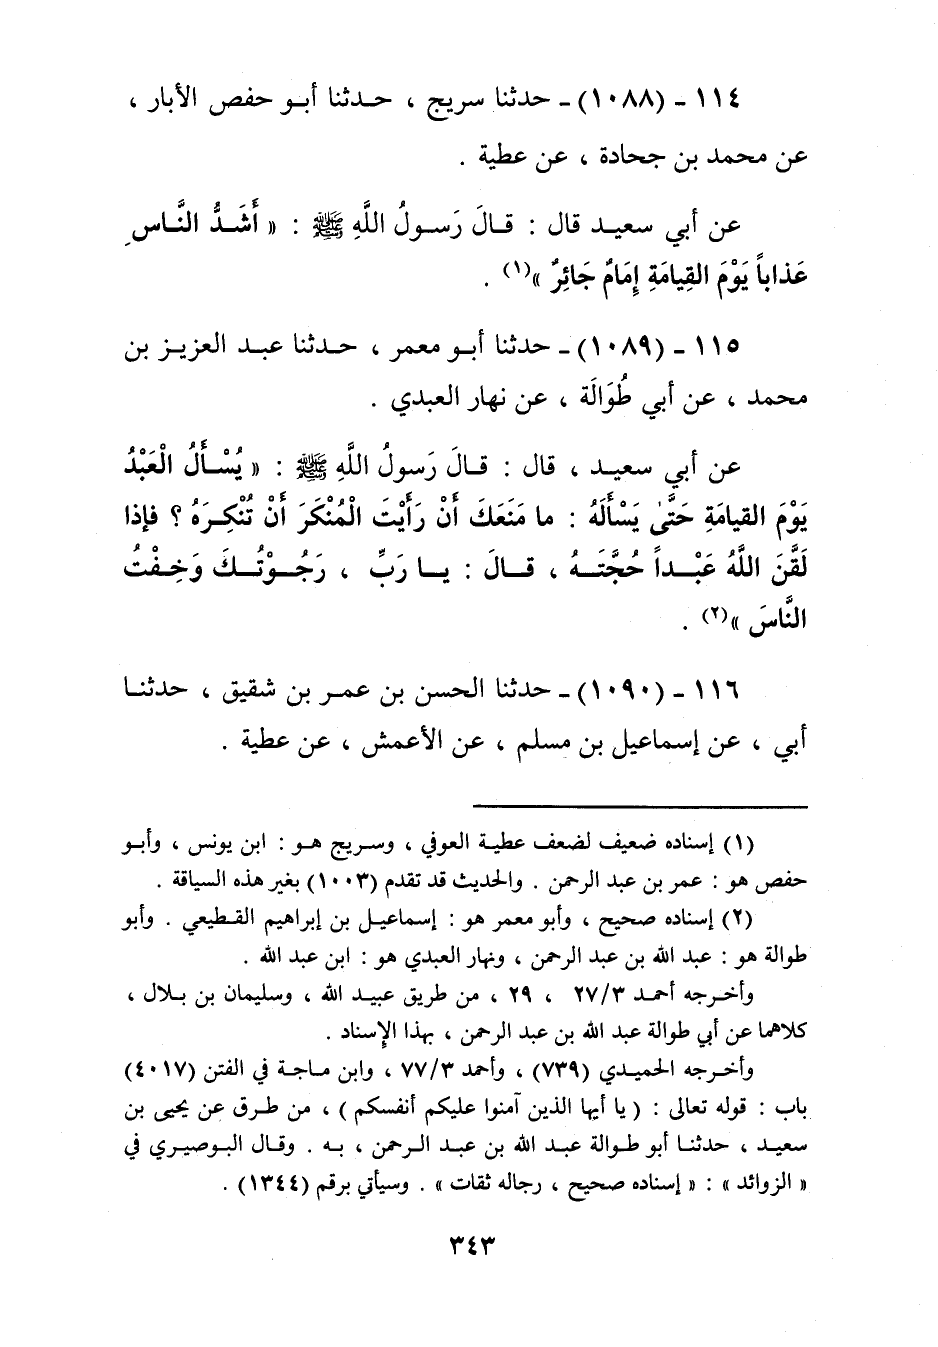 ١١٤ - (١٠٨٨) - حدثنا سريج ، حدثنا أبو حفص الأبار ،
عن محمد بن جحادة ، عن عطية .
عن أبي سعيد قال : قالَ رَسولُ اللَّهِ ﷺ : « أَشَدُّ النَّاسِ
عَذاباً يَوْمَ القِيامَةِ إِمَامٌ جَائِرٌ »(١) .
١١٥ - (١٠٨٩) - حدثنا أبو معمر ، حدثنا عبد العزيز بن
محمد ، عن أبي طُوَالَة ، عن نهار العبدي .
عن أبي سعيد ، قال : قالَ رَسولُ اللَّهِ ﷺ : « يُسْأَلُ الْعَبْدُ
يَوْمَ القيامَةِ حَتَّى يَسْأَلَهُ : ما مَنَعَكَ أَنْ رَأَيْتَ الْمُنْكَرَ أَنْ تُنْكِرَهُ ؟ فإذا
لَقَّنَ اللَّهُ عَبْداً حُجَّتَهُ ، قالَ : يا رَبِّ ، رَجُوْتُكَ وَخِفْتُ
النَّاسَ »(٢) .
١١٦ - (١٠٩٠) - حدثنا الحسن بن عمر بن شقيق ، حدثنا
أبي ، عن إسماعيل بن مسلم ، عن الأعمش ، عن عطية .
(١) إسناده ضعيف لضعف عطية العوفي ، وسريج هو : ابن يونس ، وأبو
حفص هو : عمر بن عبد الرحمن . والحديث قد تقدم (١٠٠٣) بغير هذه السياقة .
(٢) إسناده صحيح ، وأبو معمر هو : إسماعيل بن إبراهيم القطيعي . وأبو
طوالة هو : عبد الله بن عبد الرحمن ، ونهار العبدي هو : ابن عبد الله .
وأخرجه أحمد ٢٧/٣ ، ٢٩ ، من طريق عبيد الله ، وسليمان بن بلال ،
كلاهما عن أبي طوالة عبد الله بن عبد الرحمن ، بهذا الإسناد .
وأخرجه الحميدي (٧٣٩) ، وأحمد ٧٧/٣ ، وابن ماجة في الفتن (٤٠١٧)
باب : قوله تعالى : ( يا أيها الذين آمنوا عليكم أنفسكم ) ، من طرق عن يحيى بن
سعيد ، حدثنا أبو طوالة عبد الله بن عبد الرحمن ، به . وقال البوصيري في
« الزوائد » : « إسناده صحيح ، رجاله ثقات » . وسيأتي برقم (١٣٤٤) .
٣٤٣